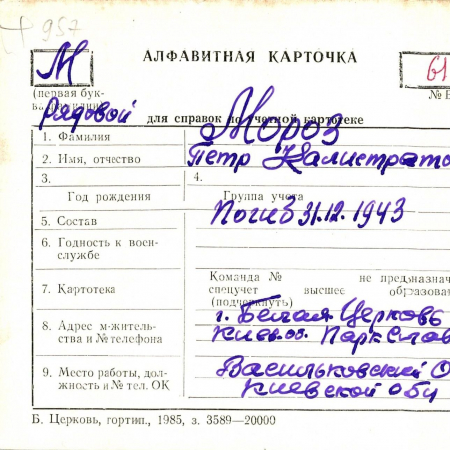 957
М
АЛФАВИТНАЯ КАРТОЧКА
61
(первая бук-
№ В
рядовой
для справок по учетной картотеке
1. Фамилия Мороз
2. Имя, отчество Петр Калистрато
3. 4.
Год рождения Группа учета
5. Состав Погиб 31.12.1943
6. Годность к воен-
службе
Команда № не предназнач
7. Картотека спецучет высшее образова
(подчеркнуть)
8. Адрес м-житель- г. Белая Церковь
ства и № телефона Киев. об. Парк Слав
9. Место работы, дол- Васильковский О
жность и № тел. ОК Киевской обл
Б. Церковь, гортип., 1985, з. 3589—20000